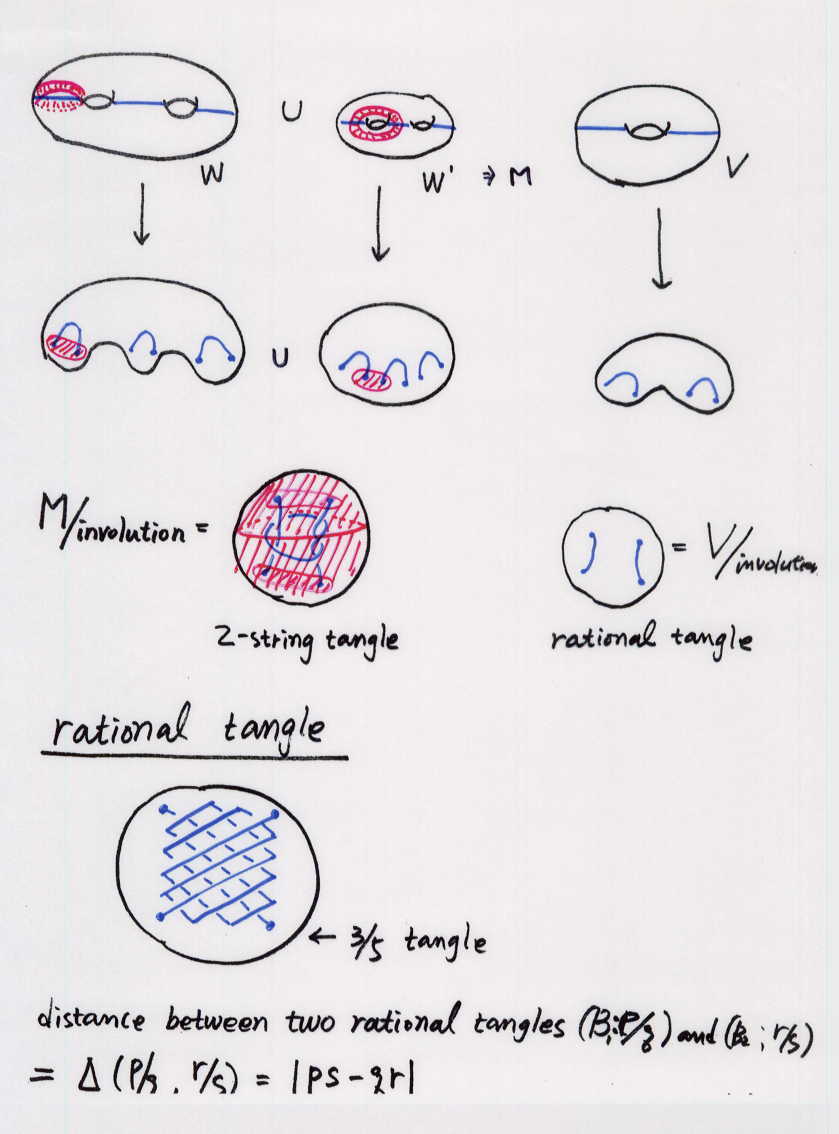 ∪
W
W' ⇒ M
V
∪
M/involution =
= V/involution
2-string tangle
rational tangle
rational tangle
← 3/5 tangle
distance between two rational tangles (B₁; P/q) and (B₂; r/s)
= Δ(P/q, r/s) = |ps - qr|